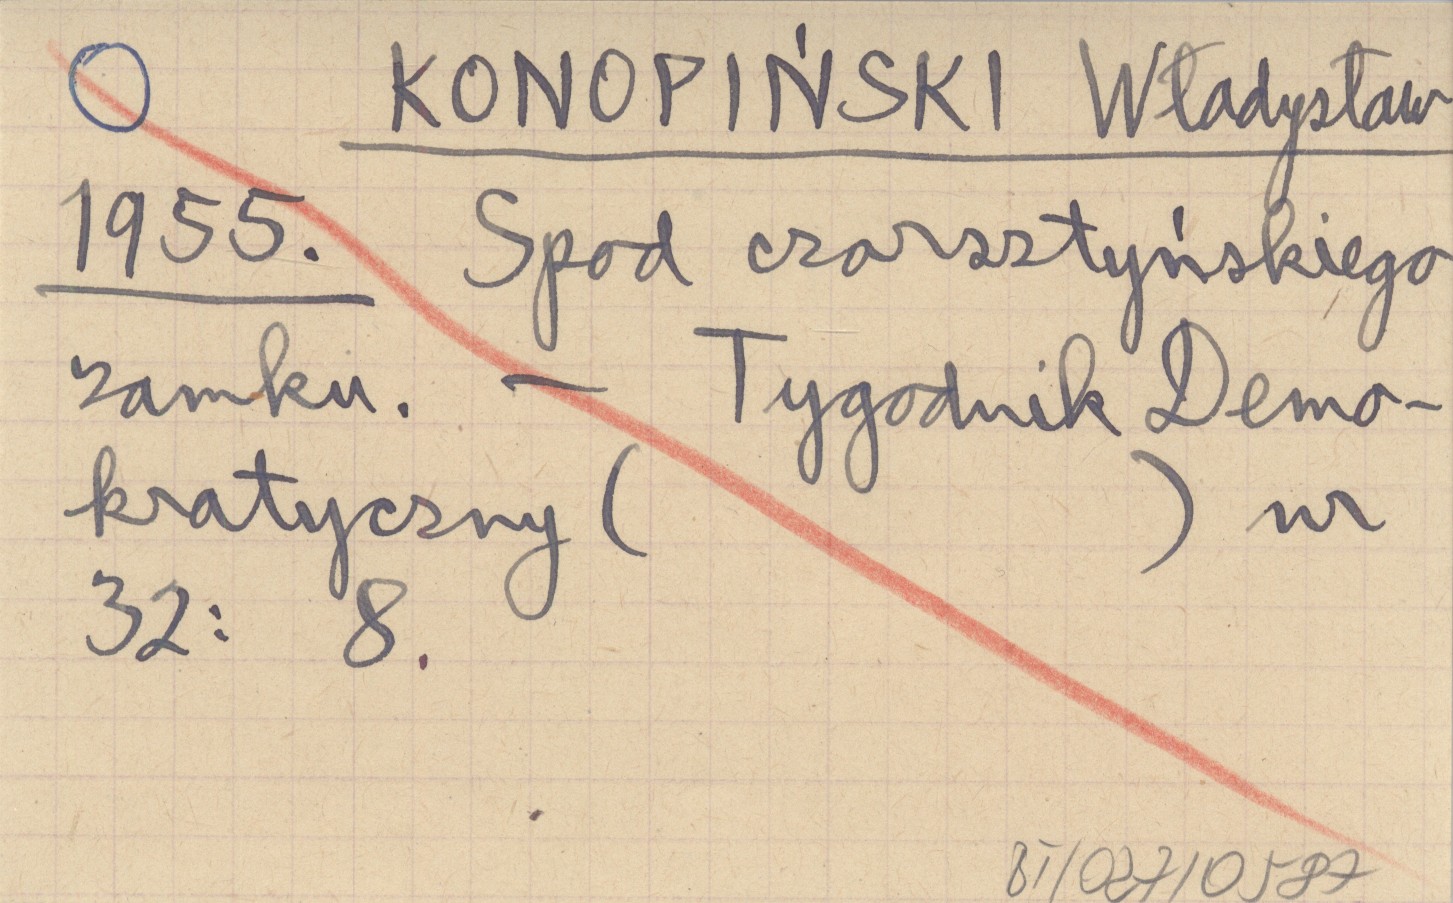 KONOPIŃSKI Władysław
1955. Spod czorsztyńskiego
zamku. – Tygodnik Demo-
kratyczny ( ) nr
32: 8.
BI/027/0587